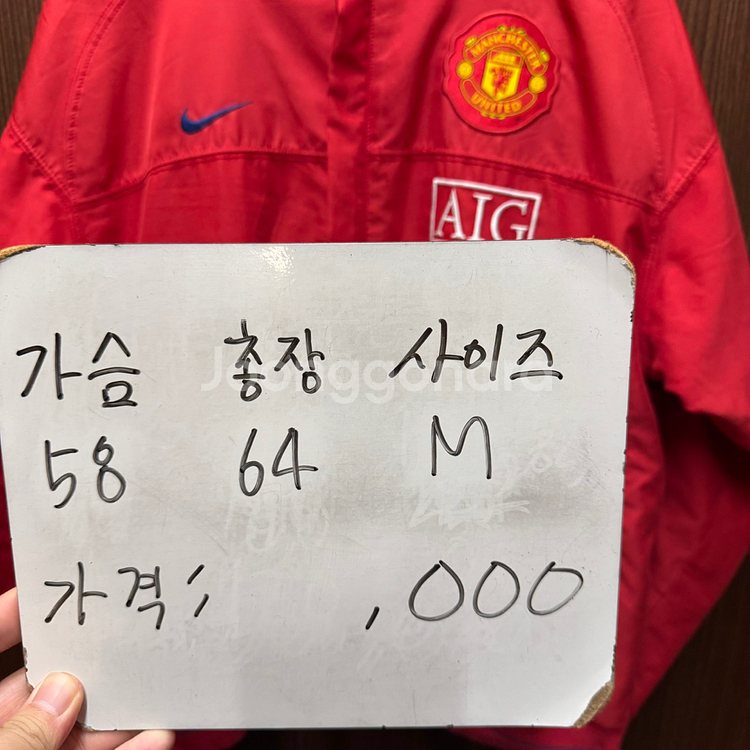 MANCHESTER
UNITED
AIG
가슴 총장 사이즈
Joonggonara
58 64 M
가격; ,000